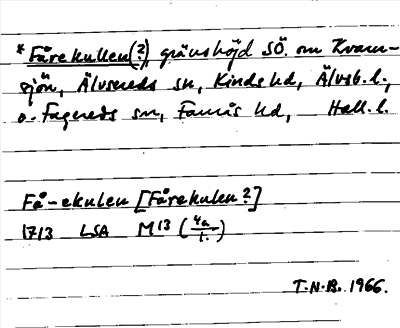 * Fårekullen(?), gränshöjd SÖ. om Kvarn-
sjön, Älvsereds sn, Kinds hd, Älvsb. l.,
o. Fagereds sn, Faurås hd, Hall. l.
Få-ekulen [Fårekulen?]
1713 LSA M13 (4a/1.)
T.N.B. 1966.